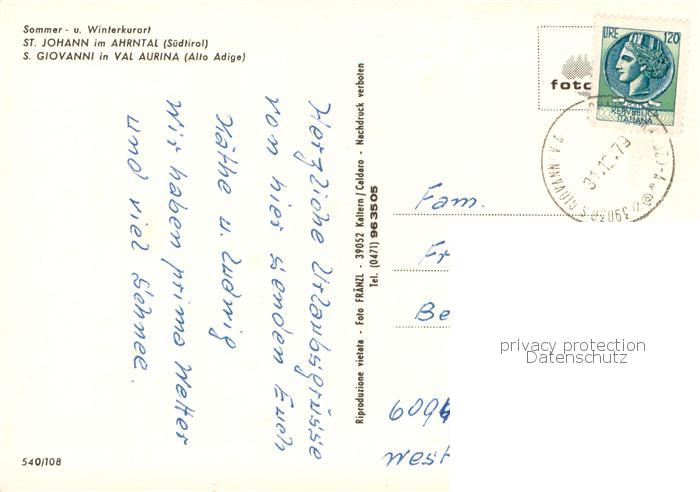 Sommer - u. Winterkurort
ST. JOHANN im AHRNTAL (Südtirol)
S. GIOVANNI in VAL AURINA (Alto Adige)
Herzliche Urlaubsgrüsse
von hier senden Euch
Käthe u. Ludwig
Wir haben prima Wetter
und viel Schnee.
Riproduzione vietata - Foto FRÄNZL - 39052 Kaltern / Caldaro - Nachdruck verboten
Tel. (0471) 963505
fotc
LIRE 120
REPVBBLICA
ITALIANA
39030 S. GIOVANNI
31.12.79
Fam.
Fr
Be
6094
West
privacy protection
Datenschutz
540/108